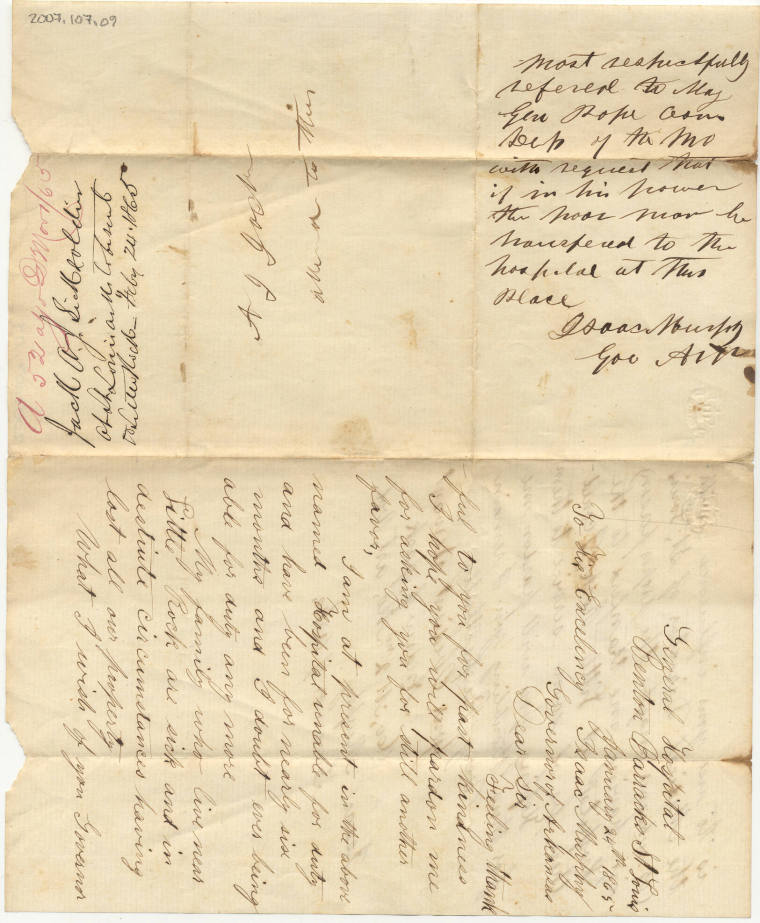 2007.107.09
most respectfully
refered to Maj
Gen Pope Com
Dep of the Mo
with request that
if in his power
the poor man be
transfered to the
hospital at this
place
Isaac Murphy
Gov Ark
Jack
at St Louis
Little Rock Feby 20 1865
General Hospital
Benton Barracks St Louis
January 24th 1865
To His Excelency Isaac Murphy
Governor of Arkansas
Dear Sir
Feeling thank
-ful to you for past kindness
I hope you will pardon me
for asking you for still another
favor,
I am at present in the above
named Hospital unable for duty
and have been for nearly six
months and I doubt ever being
able for duty any more
My family who live near
Little Rock are sick and in
destitute circumstances having
lost all our property
What I wish of you Governor